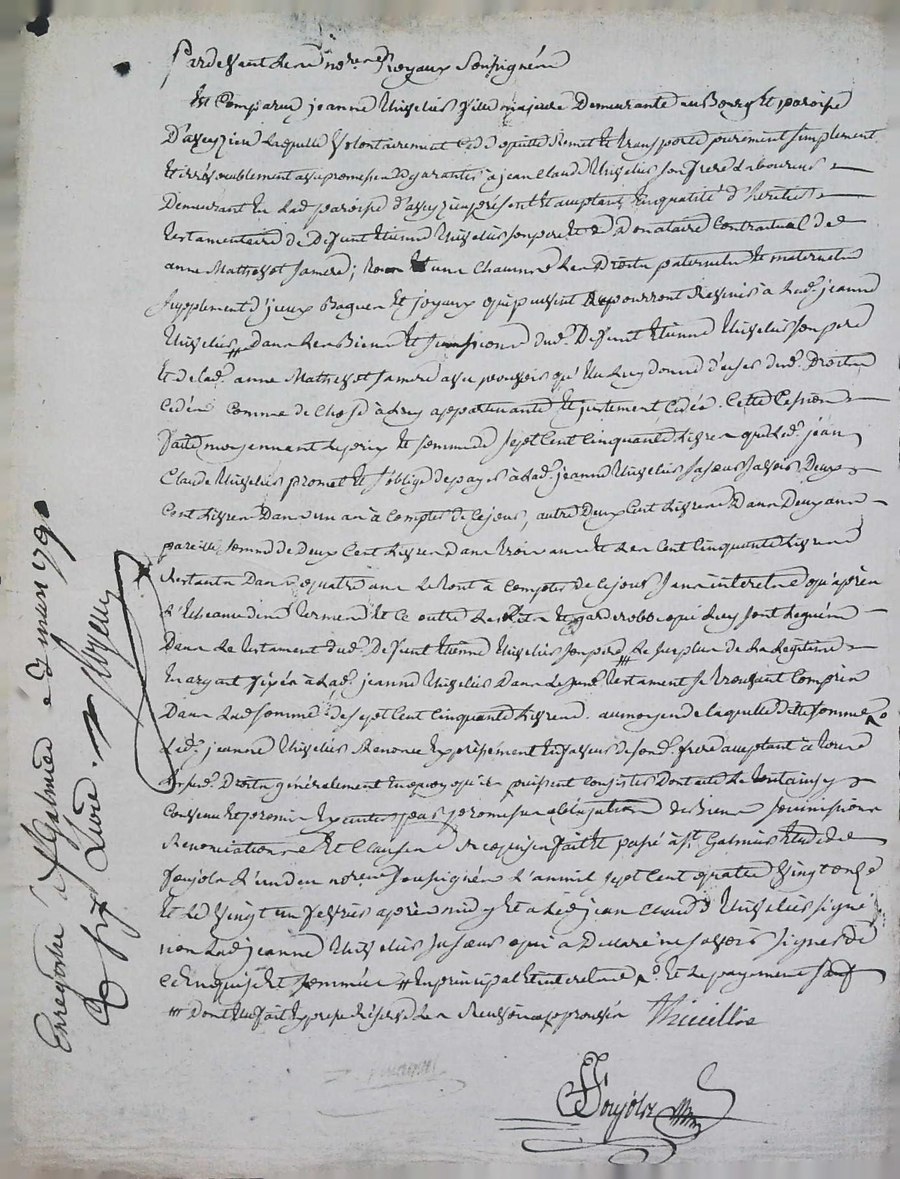 Pardevant les nores Royaux Soussignés
Est Comparue jeanne Thivellier fille majeure Demeurante au Bourg et paroisse
D'aveyzieu Laquelle Volontairement Cedde quitte Remet et transporte purement simplement
Et irrévocablement avec promesse de garantir à jean Claude Thivellier son frere Laboureur
Demeurant En Lad. paroisse d'aveyzieu présent et acceptant En qualité d'heritier
testamentaire de Defunt Etienne Thivellier son pere Et de Donataire Contractuel de
anne sa mere; tous Et une Chacune Les Droits paternels Et maternels
supplement d'jceux Bagues Et joyaux qui peuvent Et pourront Revenir à Lad. jeanne
Thivellier # Dans Les Biens Et successions dud. Defunt Etienne Thivellier son pere
Et de Lad. anne sa mere avec pouvoir qu'Elle Luy donne d'user dud. Droits
Cédés Comme de Chose à Luy appartenante Et justement Cédée. Cette Cession
faite moyennant Le prix Et somme de sept Cent Cinquante Livres que Led. jean
Claude Thivellier promet Et s'oblige de payer à Lad. jeanne Thivellier sa sœur savoir Deux
Cent Livres Dans un an à Compter de Ce jour, autre Deux Cent Livres Dans Deux ans
pareille somme de Deux Cent Livres Dans trois ans Et Les Cent Cinquante Livres
Restants Dans quatre ans Le tout à Compter de Ce jour sans interets qu'après
L'Echeance des termes Et Ce outre Les Lits Et garderobe qui Luy sont Legués
Dans Le testament dud. Defunt Etienne Thivellier son pere ### Le surplus de La Légitime
En argent fixée à Lad. jeanne Thivellier Dans Le testament se trouvant Compris
Dans Lad. somme de sept Cent Cinquante Livres. au moyen de laquelle ditte somme
Lad. jeanne Thivellier Renonce Expressement En faveur de sond. frere acceptant à tous
Droits généralement En quoy qu'ils puissent Consister Dont acte
Convenu Et promis Executer par promesse obligation de Biens soumissions
Renonciations Et Clauses fait Et passé à St. Galmier Etude de
Soujols L'un des nores soussignés L'an mil sept Cent quatre vingt onze
Et Le vingt un fevrier après midy Et a Led. jean Claude Thivellier signé
non Lad. jeanne Thivellier sa sœur qui a Declaré ne savoir signer De
Ce Enquise Et sommée # En principal Et interets Et Le payement sauf
### Dont Elle fait Expresse Réserve Les Renvois approuvés Thivellier
Soujols nre
Enregistré à St Galmier Le 2 mars 1791